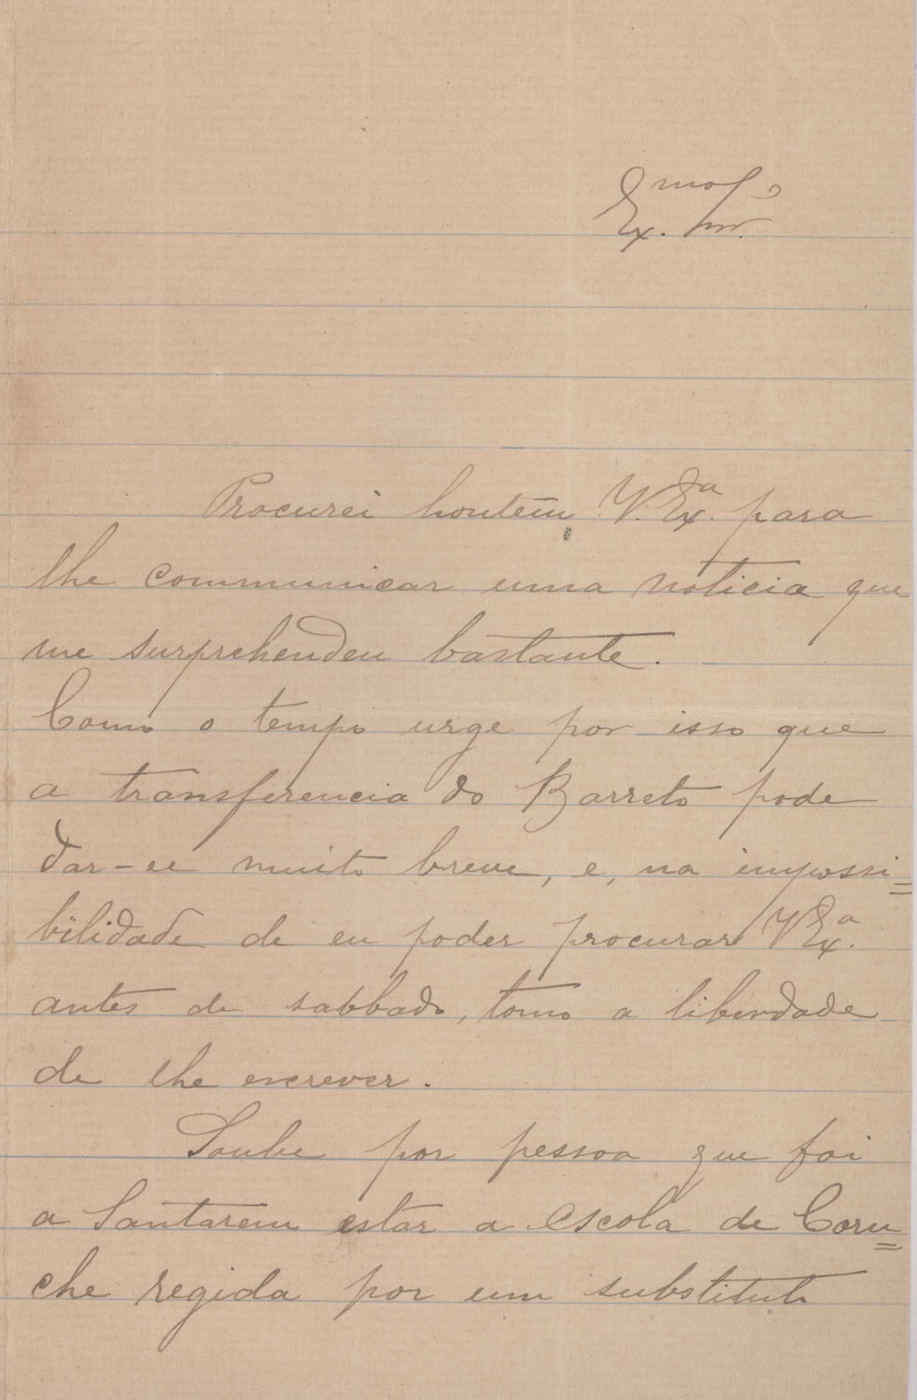 Ex.mo Snr.
Procurei hontem V. Ex.a para
lhe communicar uma noticia que
me surprehendeu bastante.
Como o tempo urge por isso que
a transferencia do Barreto pode
dar-se muito breve, e, na impossi=
bilidade de eu poder procurar V Ex.a
antes de sabbado, tomo a liberdade
de lhe escrever.
Soube por pessoa que foi
a Santarem estar a escola de Coru=
che regida por um substituto